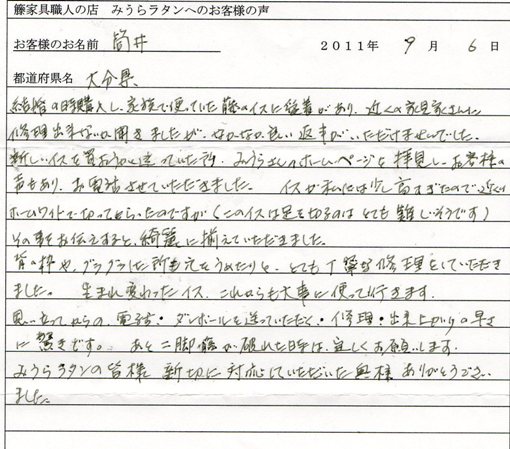 籐家具職人の店 みうらラタンへのお客様の声
お客様のお名前 筒井 2011年 9月 6日
都道府県名 大分県
結婚の時購入し、家族で使っていた籐のイスに愛着があり、近くの家具家さんに
修理出来ないか聞きましたが、なかなか良い返事がいただけませんでした。
新しいイスを買おうかと迷っていた所、みうらさんのホームページを拝見し、お客様の
声もあり、お電話させていただきました。 イスが私には少し高すぎたので近くの
ホームワイドで切ってもらったのですが(このイスは足を切るのはとても難しいそうです)
その事お伝えすると、綺麗に揃えていただきました。
背の枠や、グラグラした所も穴をうめたりと、とても丁寧な修理をしていただき
ました。 生まれ変わったイス、これからも大事に使って行きます。
思い立ってからの、電話・ダンボールを送っていただく・修理・出来上がりの早さ
に驚きです。 あと二脚籐が破れた時は、宜しくお願いします。
みうらラタンの皆様 親切に対応していただいた奥様 ありがとうござい
ました。